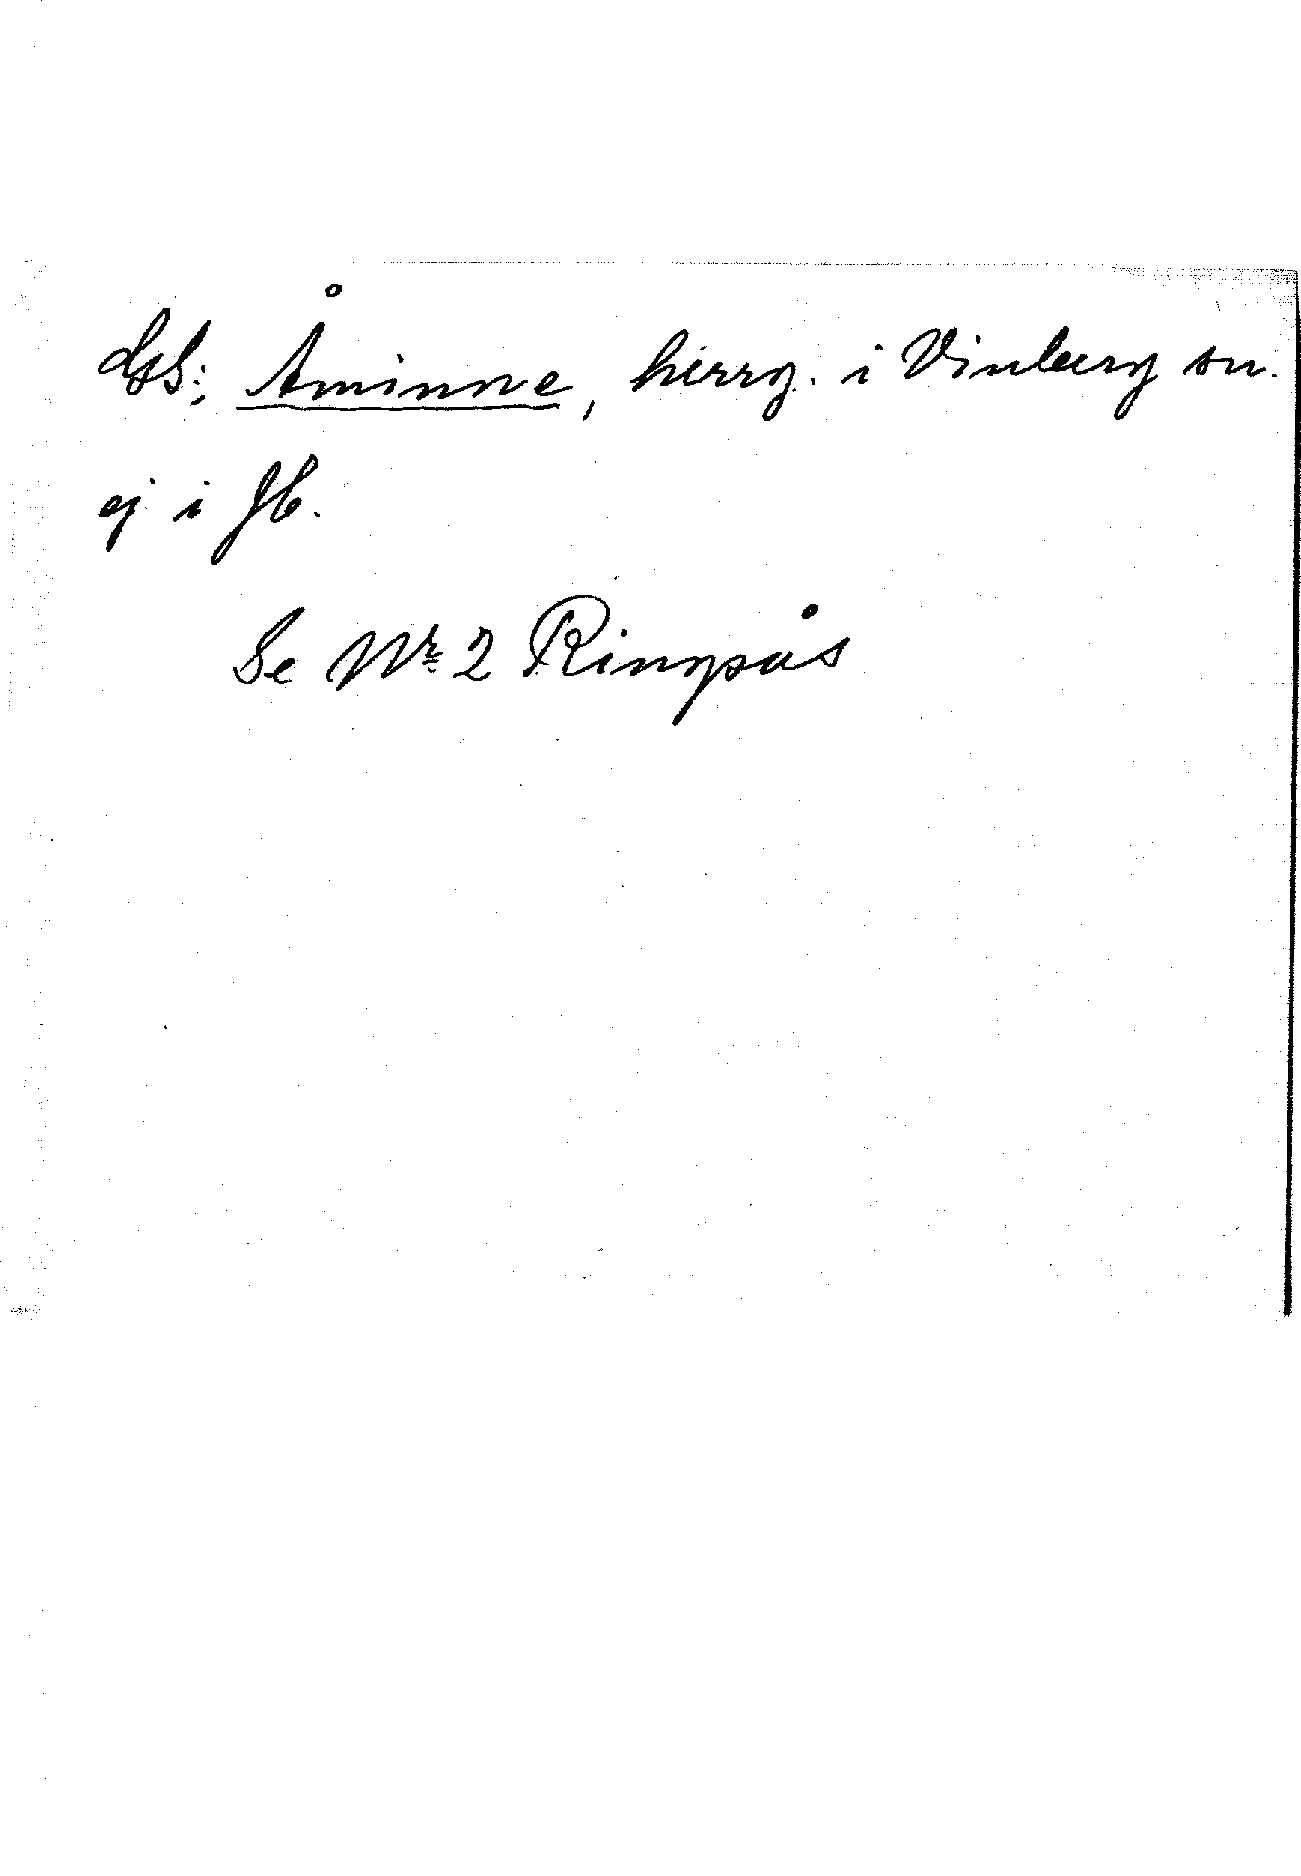 GS; Åminne, herrg. i Vinberg sn.
ej i Jb.
Se Nr 2 Ringpås